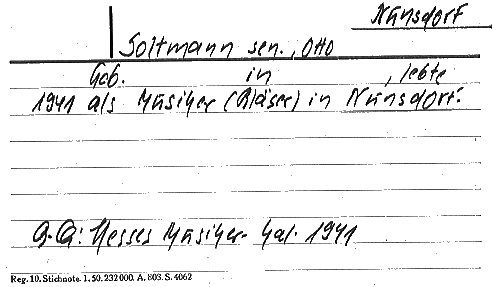 Nünsdorf
Soltmann sen., Otto
Geb. in , lebte
1941 als Musiker (Bläser) in Nünsdorf.
B.-Q.: Hesses Musiker-Kal. 1941
Reg. 10. Stichnote. 1. 50. 232000. A. 803. S. 4062